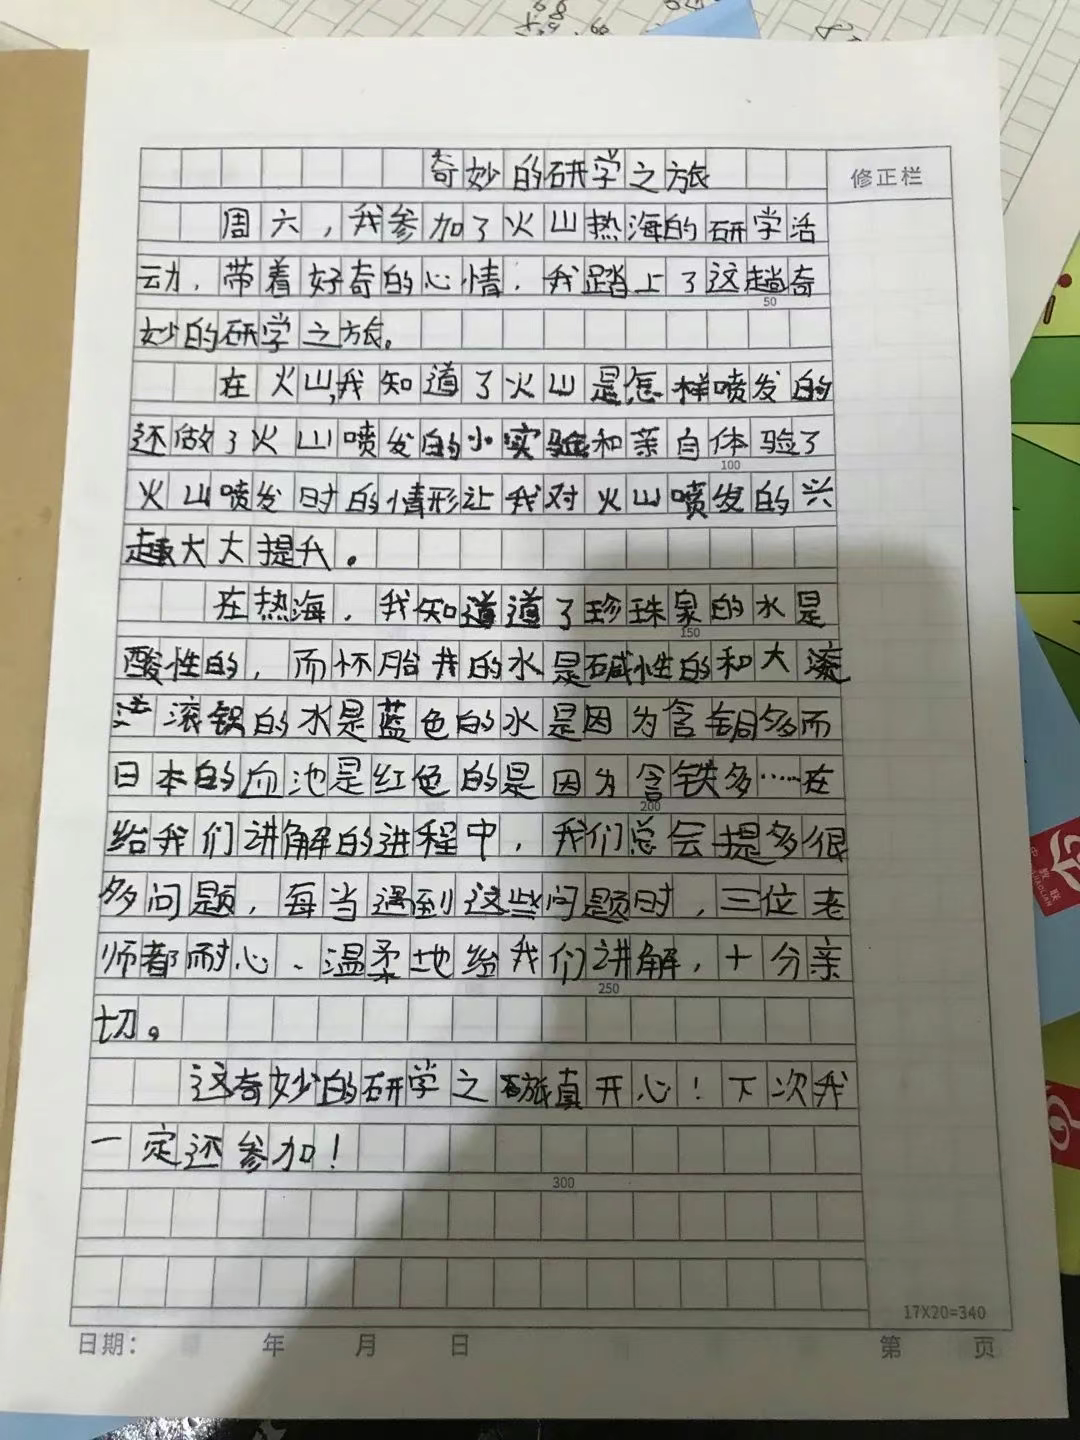 奇妙的研学之旅
修正栏
周六，我参加了火山热海的研学活
动，带着好奇的心情，我踏上了这趟奇
50
妙的研学之旅。
在火山,我知道了火山是怎样喷发的
还做了火山喷发的小实验和亲自体验了
100
火山喷发时的情形让我对火山喷发的兴
趣大大提升。
在热海，我知道道了珍珠泉的水是
150
酸性的，而怀胎井的水是碱性的和大滚
滚锅的水是蓝色的水是因为含铜多而
日本的血池是红色的是因为含铁多……在
200
给我们讲解的进程中，我们总会提多很
多问题，每当遇到这些问题时，三位老
师都耐心、温柔地给我们讲解，十分亲
250
切。
这奇妙的研学之旅真开心！下次我
一定还参加！
300
17X20=340
日期： 年 月 日 第 页